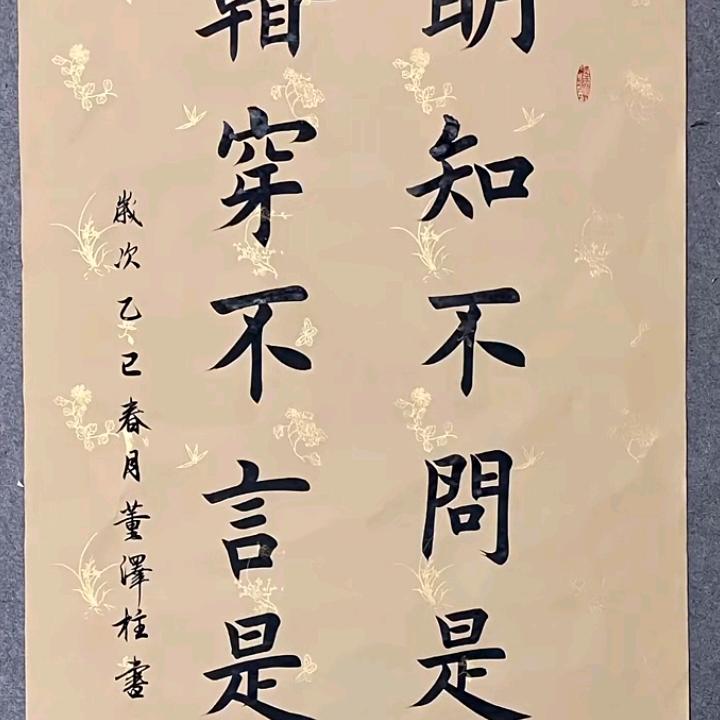 明知不問是
穿不言是
歲次乙巳春月董澤柱書